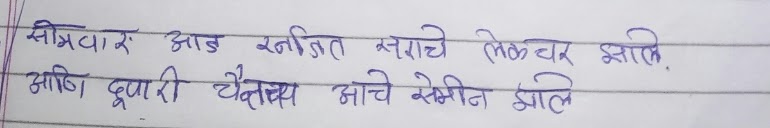 सोमवार आज रनजित सराचे लेकचर झाले.
आणि दूपारी चैतन्य आचे सेमीन झाले